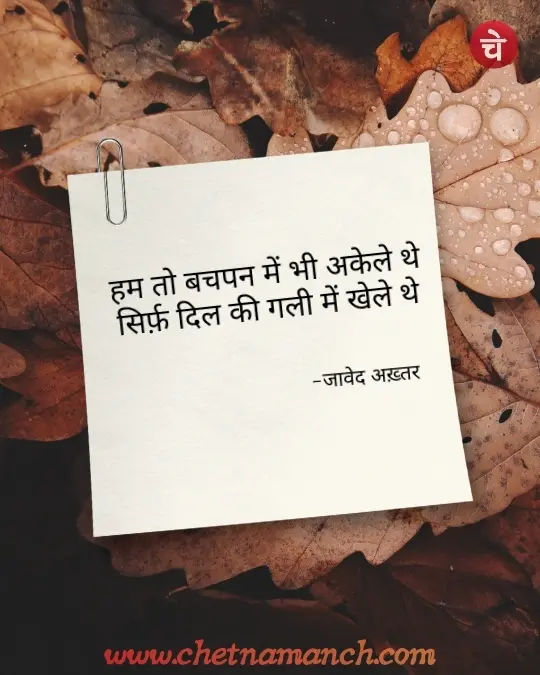 चे
हम तो बचपन में भी अकेले थे
सिर्फ़ दिल की गली में खेले थे
-जावेद अख़्तर
www.chetnamanch.com